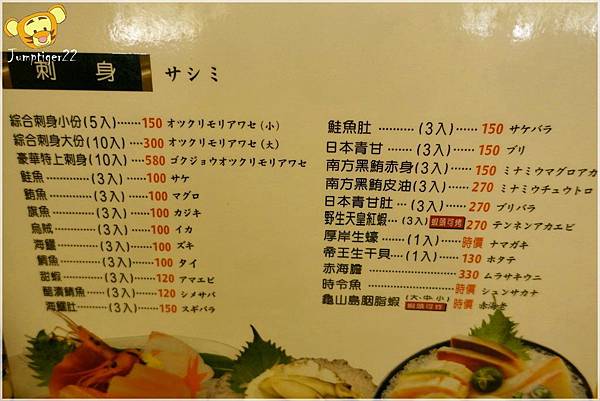 Jumptiger22
刺 身 サシミ
綜合刺身小份(5入)......150 オツクリモリアワセ(小)
綜合刺身大份(10入)....300 オツクリモリアワセ(大)
豪華特上刺身(10入)....580 ゴクジョウオツクリモリアワセ
鮭魚............(3入)......100 サケ
鮪魚............(3入)......100 マグロ
旗魚............(3入)......100 カジキ
烏賊............(3入)......100 イカ
海鱺............(3入)......100 ズキ
鯛魚............(3入)......100 タイ
甜蝦............(3入)......120 アマエビ
醋漬鯖魚......(3入)......120 シメサバ
海鱺肚.........(3入)......150 スギバラ
鮭魚肚..........(3入)......150 サケバラ
日本青甘......(3入)......150 ブリ
南方黑鮪赤身(3入)....150 ミナミマグロアカ
南方黑鮪皮油(3入)....270 ミナミウチュウトロ
日本青甘肚...(3入)......270 ブリバラ
野生天皇紅蝦...(3入) 蝦頭可烤 270 テンネンアカエビ
厚岸生蠔......(1入)......時價 ナマガキ
帝王生干貝....(1入)......130 ホタテ
赤海膽........................330 ムラサキウニ
時令魚........................時價 シュンサカナ
龜山島胭脂蝦 (大.中.小) 蝦頭可炸 時價 赤海老